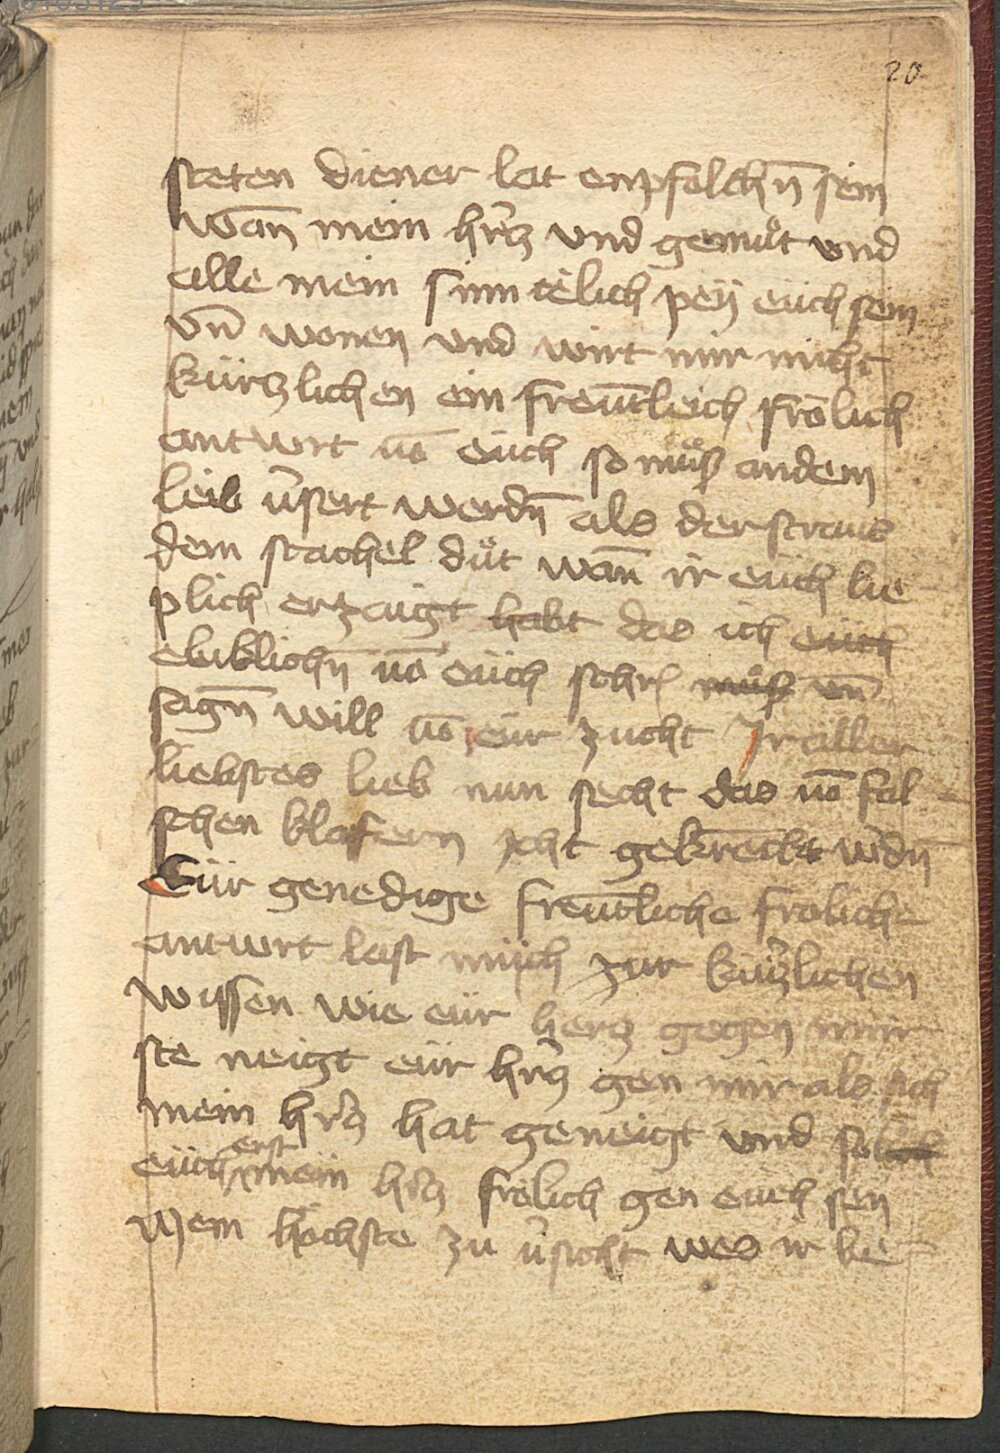 20
steten diener lat empfolchn̄ sein
wan̄ mein hr̄cz vnd gemüt vnd
alle mein sinn telich peÿ eüch sein
vn̄ wonen vnd wirt mir nicht
kürczlichen ein freūtleich frölich
antwort vō eüch so müsz andem
leib v̄sert werdn̄ als der straus
dem stachel düt wan̄ ir eüch lie
plich erzeugt habt das ich euch
ebiklichn̄ vō eüch schrͥ müsz vn̄
sagn̄ will vō eür zucht Jr aller
liebstes lieb nun secht das vō fal
schen klafern icht gekrēckt wdn̄
Eür genedige freūtliche froliche
antwort last mich zur kürczlichen
wissen wie eür hercz gegen mir
ste neigt eür hr̄cz gen mir als sich
mein hr̄cz hat geneigt vnd solich
eüch erst mein hr̄cz frölich gen eüch sen
Mein höchste zu v̄sicht wes ir lie